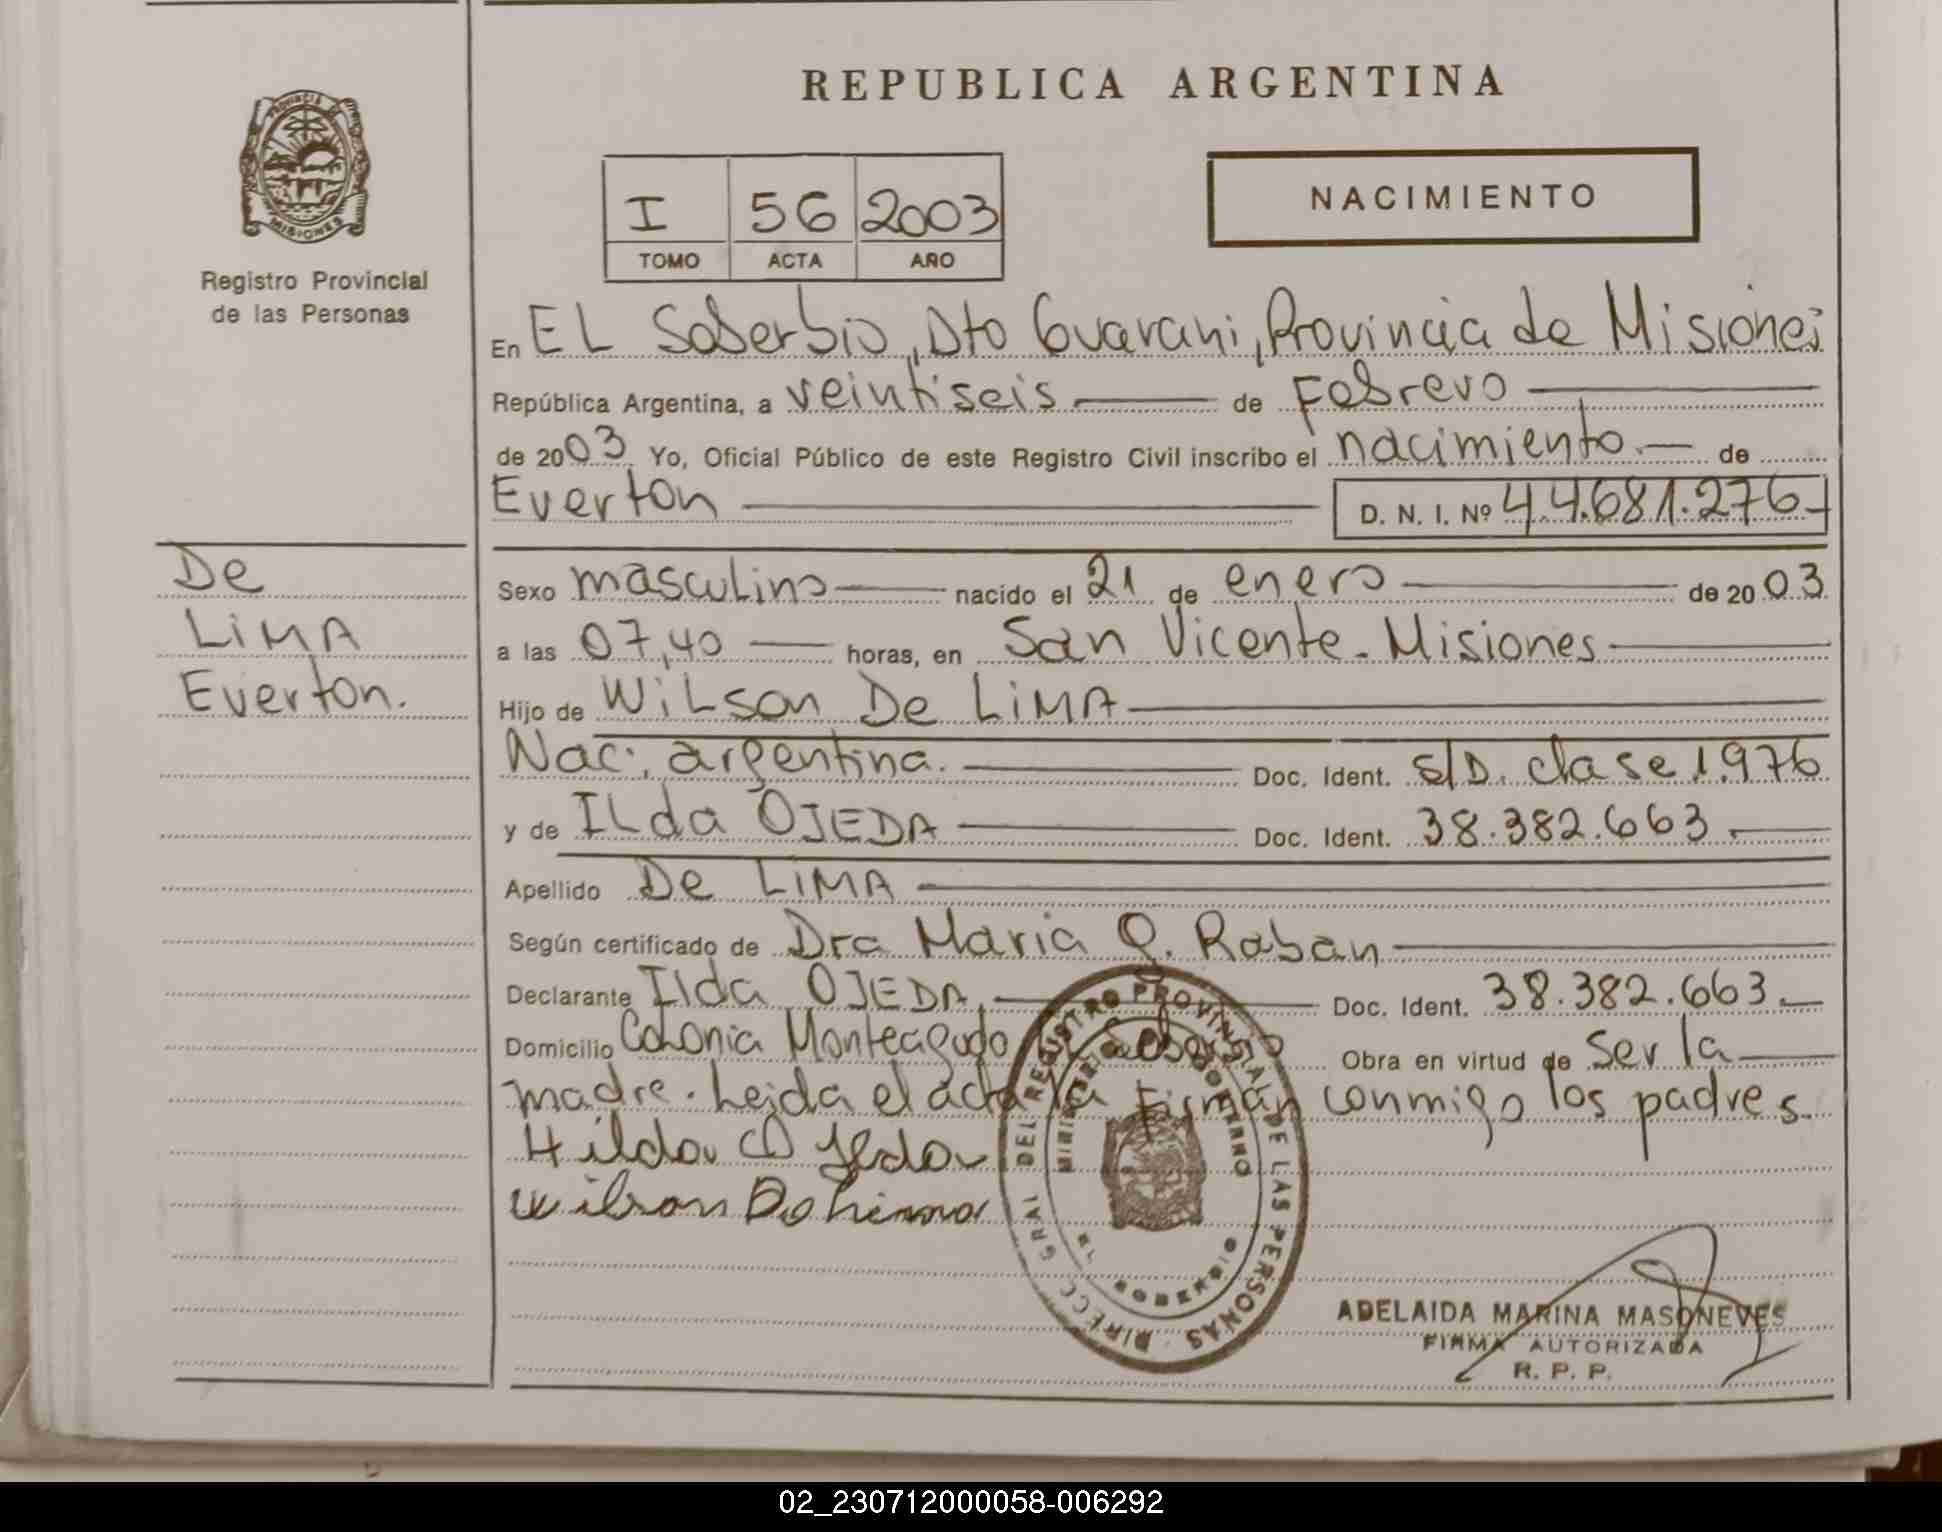 REPUBLICA ARGENTINA
PROVINCIA DE
MISIONES
Registro Provincial
de las Personas
NACIMIENTO
I 56 2003
TOMO ACTA AÑO
En EL Soberbio, Dto Guarani, Provincia de Misiones
República Argentina, a veintiseis de Febrero
de 2003 Yo, Oficial Público de este Registro Civil inscribo el nacimiento.— de
Everton D. N. I. Nº 44.681.276
De
LiMA
Everton.
Sexo masculino nacido el 21 de enero de 2003
a las 07,40 horas, en San Vicente - Misiones
Hijo de WiLson De LiMA
Nac: argentina. Doc. Ident. s/D. clase 1.976
y de ILda OJEDA Doc. Ident. 38.382.663.
Apellido De LIMA
Según certificado de Dra Maria G. Raban
Declarante Ilda OJEDA Doc. Ident. 38.382.663.
Domicilio Colonia Monteagudo Obra en virtud de ser la
madre. Leida el acta la Firman conmigo los padres.
Hilda Ojeda
Wilson De Lima
DIRECC GRAL DEL REGISTRO PROVINCIAL DE LAS PERSONAS
MINISTERIO DE GOBIERNO
EL SOBERBIO
ADELAIDA MARINA MASONEVES
FIRMA AUTORIZADA
R. P. P.
02_230712000058-006292